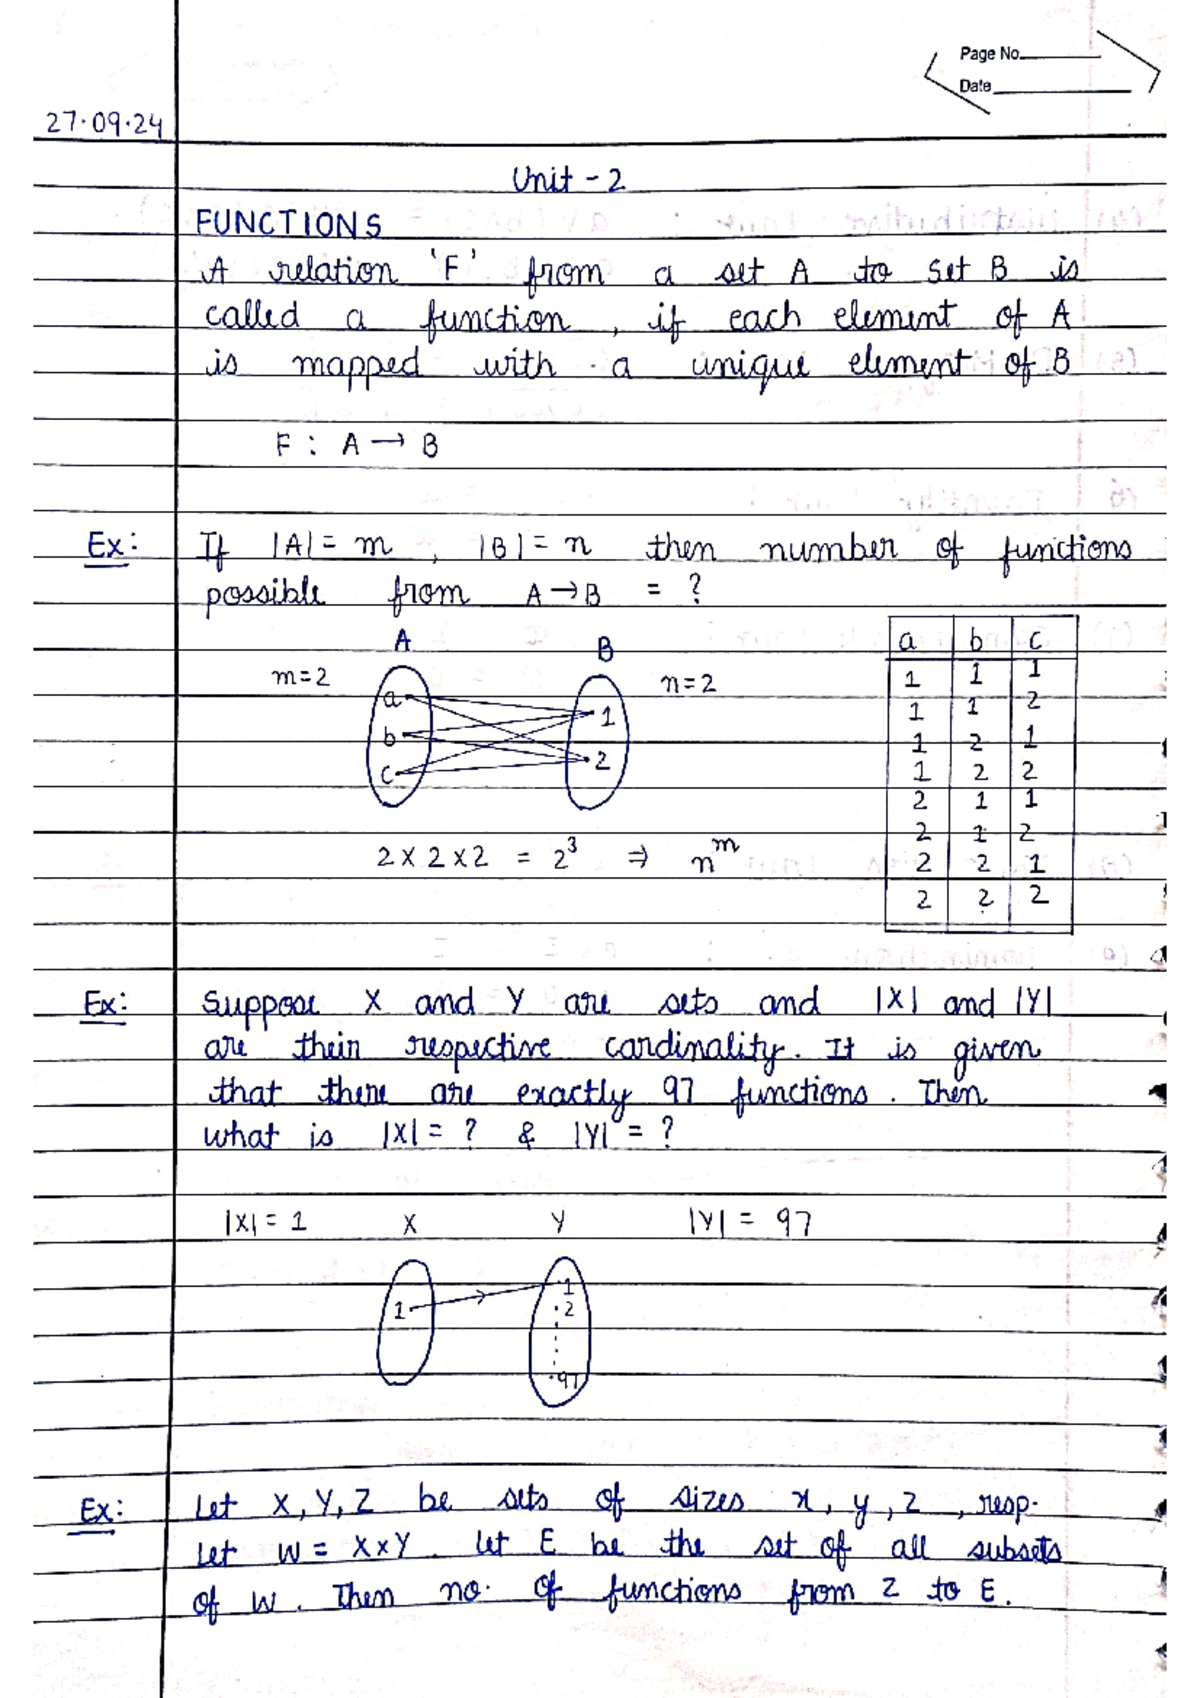 Page No.
Date
27.09.24
Unit - 2
FUNCTIONS
A relation 'F' from a set A to set B is
called a function, if each element of A
is mapped with a unique element of B
F : A → B
Ex: If |A| = m , |B| = n then number of functions
possible from A → B = ?
A B
m=2 n=2
a
b
c
1
2
a b c
1 1 1
1 1 2
1 2 1
1 2 2
2 1 1
2 1 2
2 2 1
2 2 2
2 × 2 × 2 = 2³ ⇒ nᵐ
Ex: Suppose X and Y are sets and |X| and |Y|
are their respective cardinality. It is given
that there are exactly 97 functions. Then
what is |X| = ? & |Y| = ?
|X| = 1 X Y |Y| = 97
1
1
2
97
Ex: Let X, Y, Z be sets of sizes x, y, z , resp.
Let W = X×Y. Let E be the set of all subsets
of W. Then no. of functions from Z to E.